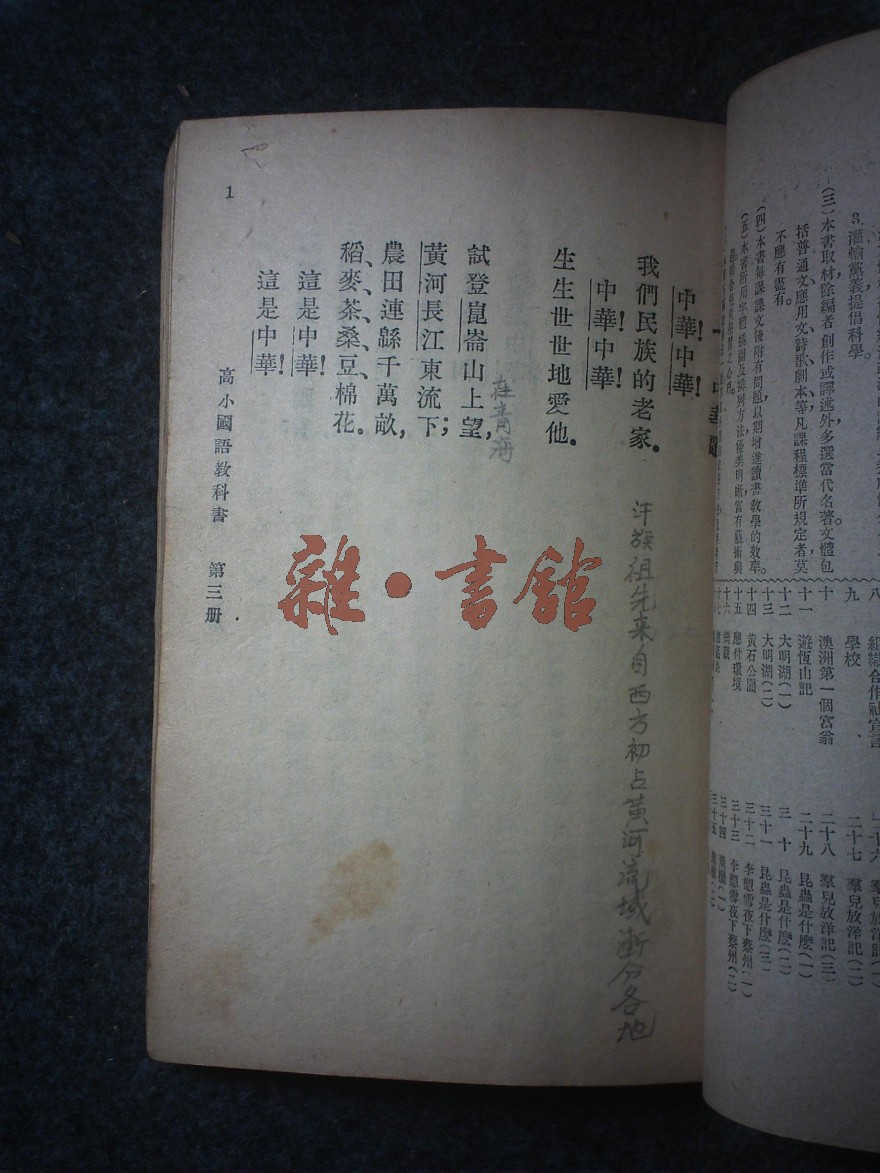 3. 灌輸黨義提倡科學。
(三)本書取材除編者創作或譯述外多選當代名著文體包
括普通文應用文詩歌劇本等凡課程標準所規定者莫
不應有盡有。
(四)本書每課課文後附有問題以期增進讀書教學的效率。
(五)本書所用字體插圖及排列方法優美明晰富有藝術興
八 組織合作社宣言
九 學校
十 澳洲第一個富翁
十一 遊恆山記
十二 大明湖(一)
十三 大明湖(二)
十四 黃石公園
十五 應付環境
十六 樂觀
二十六 羣兒放洋記(一)
二十七 羣兒放洋記(二)
二十八 羣兒放洋記(三)
二十九 昆蟲是什麼(一)
三十 昆蟲是什麼(二)
三十一 昆蟲是什麼(三)
三十二 李愬雪夜下蔡州(一)
三十三 李愬雪夜下蔡州(二)
三十四
中華!中華!
我們民族的老家。
汗族祖先来自西方初占黄河流域漸分各地
中華!中華!
生生世世地愛他。
在青海
試登崑崙山上望,
黃河長江東流下;
農田連緜千萬畝,
稻、麥、茶、桑、豆、棉花。
這是中華!
這是中華!
高小國語教科書 第三册
1
雜·書館